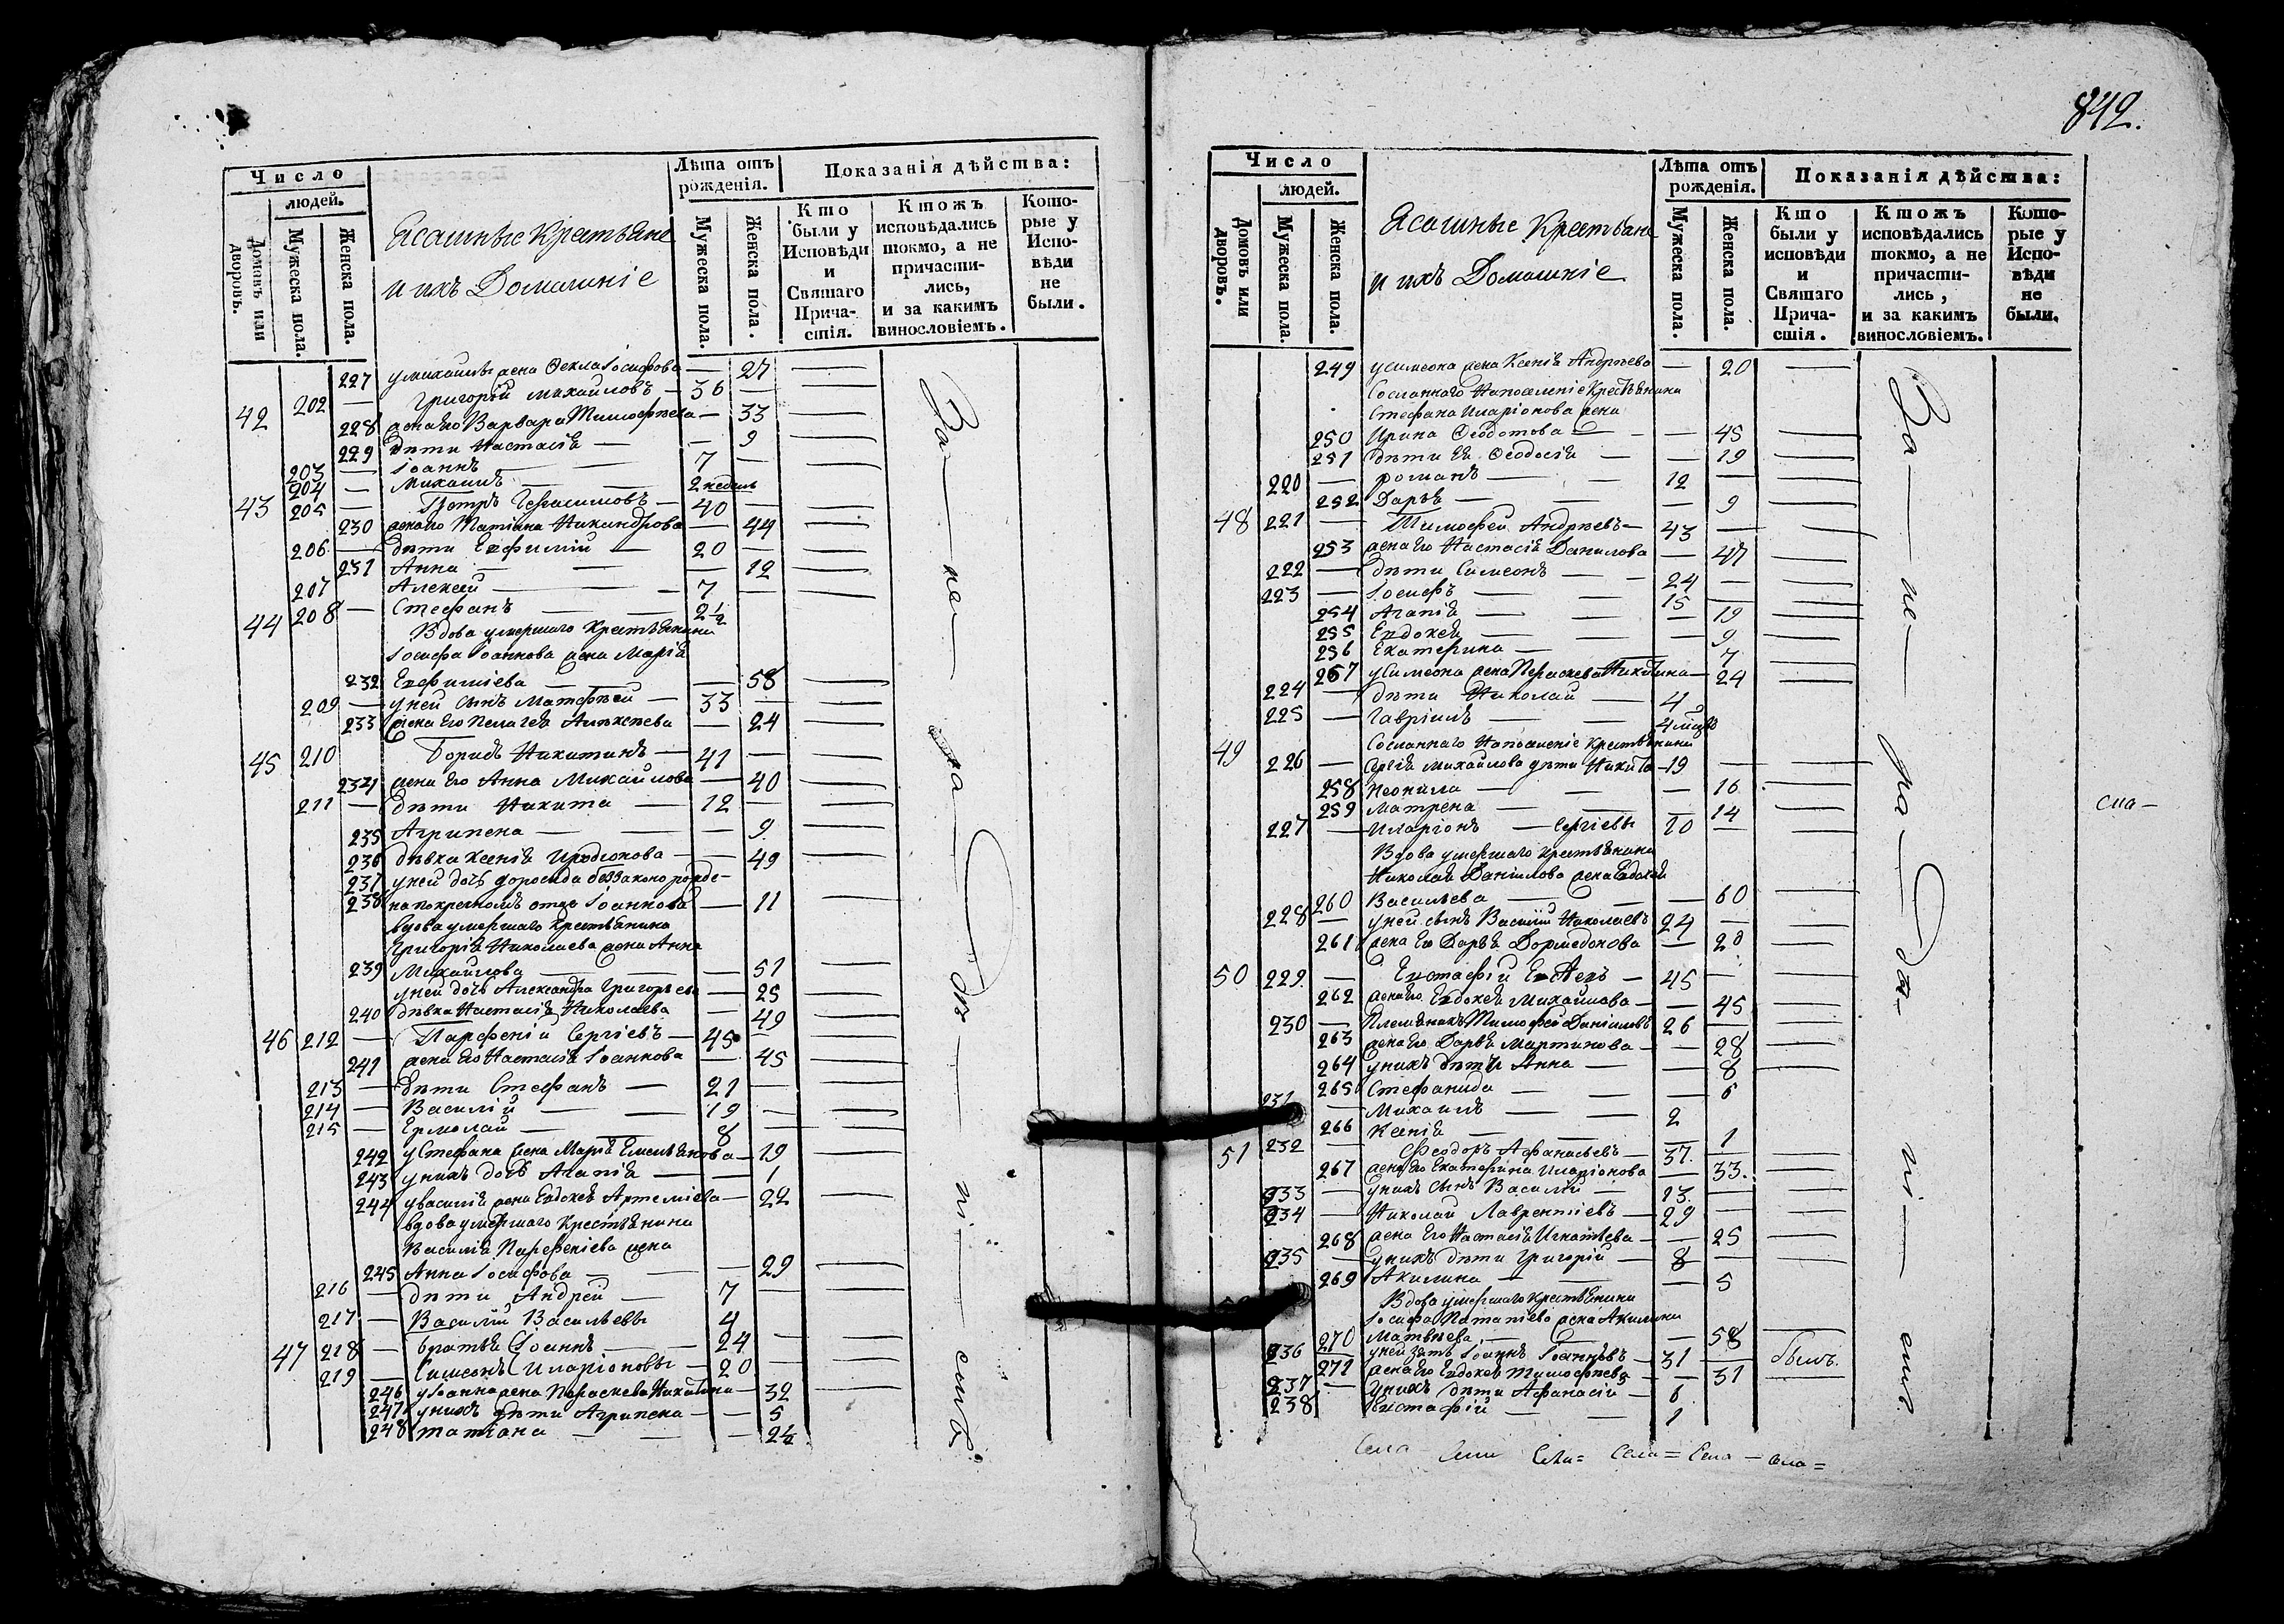 842.
Число
людей.
Домовъ или дворовъ.
Мужеска пола.
Женска пола.
Ясашные Крестьяне
и ихъ Домашніе
Лѣта отъ рожденія.
Мужеска пола.
Женска пола.
Показанія дѣйства:
Кто были у Исповѣди и Святаго Причастія.
Ктожъ исповѣдались токмо, а не причастились, и за какимъ винословіемъ.
Которые у Исповѣди не были.
227 у михаилы жена Ѳекла Іосифова — 27
42 202 — Григорій михайловъ — 36 —
228 жена его Варвара Тимофеева — 33
229 дѣти Настасія — — 9
203 — Іоаннъ — 7 —
204 — Михаилъ — 2 недель
43 205 — Петръ Герасимовъ — 40 —
230 жена его Татіана Никандрова — 44
206 — дѣти Евфимій — 20 —
231 Анна — — 12
207 Алексей — 7 —
44 208 — Стефанъ — 2½
Вдова умершаго Крестьянина
Іосифа Іоаннова жена Марія
232 Евфиміева — — 58
209 — у ней сынъ Матфей — 33 —
233 жена его Пелагея Алексеева — 24
45 210 Борисъ Никитинъ — 41 —
234 жена его Анна Михайлова — 40
211 — дѣти Никита — 12 —
235 Агрипена — — 9
236 дѣвка Ксенія Иродіонова — — 49
237 у ней дочь
238 Іоаннова — 11
вдова умершаго Крестьянина
Григорія Николаева жена Анна
239 Михайлова — — 51
у ней дочь Александра Григорьева — 25
240 дѣвка Настасія Николаева — 49
46 212 — Парфеній Сергіевъ — 45 —
241 жена его Настасія Іоаннова — 45
213 — дѣти Стефанъ — 21 —
214 — Василій — 19 —
215 — Ермолай — 8 —
242 у Стефана жена Марія Емельянова — 19
243 у нихъ дочь Агапія — 1
244 у василія жена Евдокея Артеміева — 22
вдова умершаго Крестьянина
Василія Парфеніева жена
245 Анна Іосифова — — 29
216 — дѣти Андрей — 7 —
217 — Василій Васильевы 4
47 218 — братья Іоаннъ — 24 —
219 — Симеонъ Иларіоновы — 20 —
246 у Іоанна жена Параскева Никитина — 32
247 у нихъ дѣти Агрипена — — 5
248 татіана — — 2½
За — не — ма — — — ні — емъ
Число
людей.
Домовъ или дворовъ.
Мужеска пола.
Женска пола.
Ясашные Крестьяне
и ихъ Домашніе
Лѣта отъ рожденія.
Мужеска пола.
Женска пола.
Показанія дѣйства:
Кто были у исповѣди и Святаго Причастія.
Ктожъ исповѣдались токмо, а не причастились, и за какимъ винословіемъ.
Которые у Исповѣди не были.
249 у симеона жена Ксенія Андреева — 20
Сосланнаго На поселеніе Крестьянина
Стефана Иларіонова жена
250 Ирина Ѳеодотова — — 45
251 дѣти ея Ѳеодосія — — 19
220 — романъ — 12 —
252 Дарья — — 9
48 221 — Тимофей Андреевъ — 43 —
253 жена его Настасія Данилова — 47
222 — дѣти Симеонъ — 24 —
223 — Іосифъ — 15 —
254 Агапія — — 19
255 Евдокея — — 9
256 Екатерина — 7
257 у Симеона жена Параскева Никитина — 24
224 — дѣти Николай — 4
225 — Гавріилъ — 4 мцъ
49 Сосланнаго На поселеніе Крестьянина
226 — Сергія Михайлова дѣти Никита — 19 —
258 Неонила — — 16
259 Матрена — — 14
227 — Иларіонъ — Сергіевы 10 —
Вдова умершаго крестьянина
Николая Даніилова жена Евдокея
260 Васильева — — 60
228 — у ней сынъ Василій Николаевъ 24 —
261 жена его Дарья Дормедонова — 20
50 229 — Евстафій — 45 —
262 жена его Евдокея Михайлова — — 45
230 — Племянникъ Тимофей Даніиловъ 26 —
263 жена его Дарья Мартинова — — 28
264 у нихъ дѣти Анна — — 8
265 Стефанида — — 6
231 — Михаилъ — 2
266 Ксенія — — 1
51 232 — Феодоръ Афанасьевъ — 37 —
267 жена его Екатерина Иларіонова — 33
233 — у нихъ сынъ Василій — 13 —
234 — Николай Лаврентіевъ — 29 —
268 жена его Настасія Игнатьева — — 25
235 — у нихъ дѣти Григорій — 8 —
269 Акилина — — 5
Вдова умершаго Крестьянина
Іосифа Потапіева жена Акилина
270 Матвеева — — 58
236 у ней зять Іоаннъ — 31 — былъ.
271 жена его Евдокея Тимофеева — — 31
237 — у нихъ дѣти Афанасій — 6
238 Евстафій — 1
За — не — ма — — — ні — емъ
сла —
Села — Сели Сели = Села = Села — села =